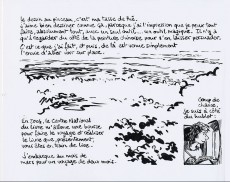 Le dessin au pinceau, c'est ma tasse de thé.
J'aime bien dessiner comme ça, parce que j'ai l'impression que je peux tout
faire, absolument tout, avec un seul outil... un outil magique. Il n'y a
qu'à regarder du côté de la peinture chinoise pour s'en laisser persuader.
C'est ce que j'ai fait, et puis, de là est venue simplement
l'envie d'aller voir sur place.
Coup de
chance,
je suis à côté
du hublot.
En 2005, le Centre National
du Livre m'alloue une bourse
pour faire le voyage et réaliser
le livre que, présentement,
vous êtes en train de lire.
J'embarque au mois de
mars pour un voyage de deux mois.